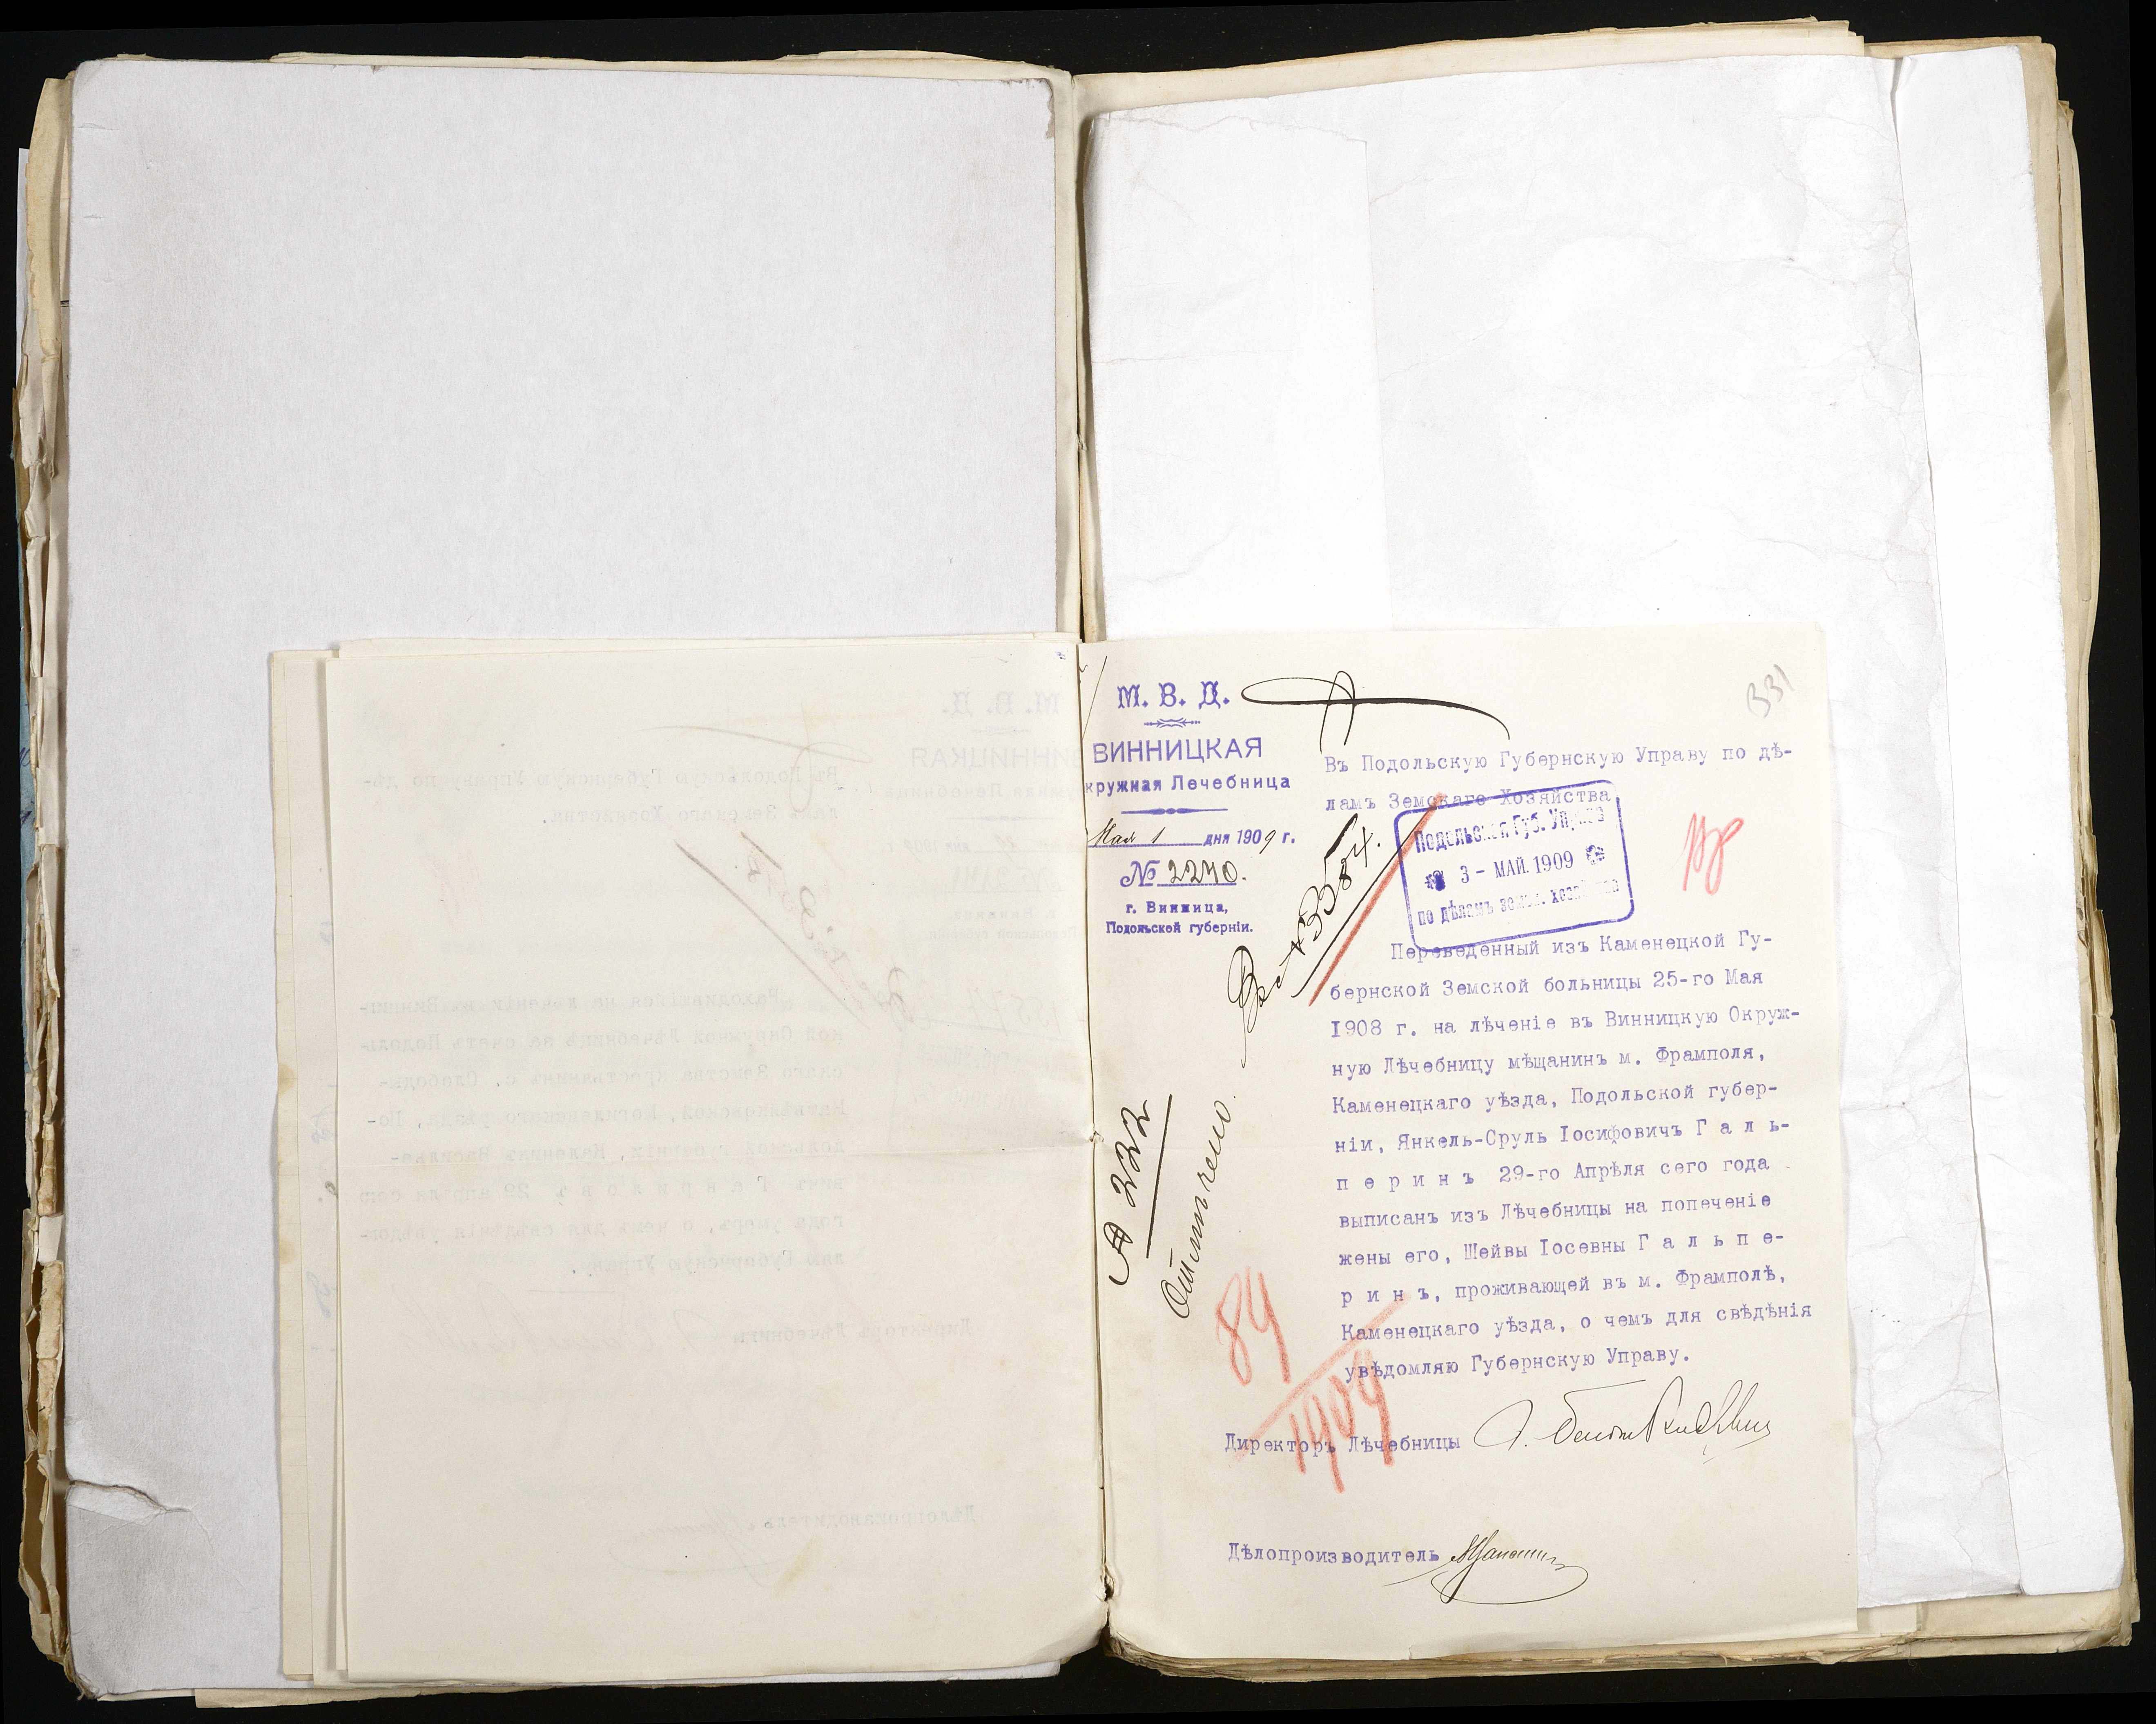 331
М. В. Д.
ВИННИЦКАЯ
кружная Лечебница
Мая 1 дня 1909 г.
№ 2240.
г. Винница,
Подольской губерніи.
Въ Подольскую Губернскую Управу по дѣ-
ламъ Земскаго Хозяйства
Подольская Губ. Управа
3 - МАЙ. 1909
по дѣламъ земск. хозяйства
3584.
А 222
Отмѣчено.
Переведенный изъ Каменецкой Гу-
бернской Земской больницы 25-го Мая
1908 г. на лѣченіе въ Винницкую Окруж-
ную Лѣчебницу мѣщанинъ м. Фрамполя,
Каменецкаго уѣзда, Подольской губер-
ніи, Янкель-Сруль Іосифовичъ Г а л ь-
п е р и н ъ 29-го Апрѣля сего года
выписанъ изъ Лѣчебницы на попеченіе
жены его, Шейвы Іосевны Г а л ь п е-
р и н ъ, проживающей въ м. Фрамполѣ,
Каменецкаго уѣзда, о чемъ для свѣдѣнія
увѣдомляю Губернскую Управу.
84
1909
Директоръ Лѣчебницы
Дѣлопроизводитель